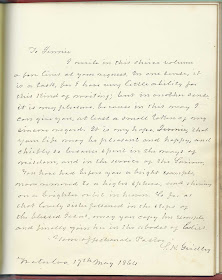 To Jennie
I write in this choice volume
a few lines at your request. In one sense, it
is a task, for I have very little ability for
this kind of writing; but in another sense
it is my pleasure, because in this way I
can give you, at least a small token of my
sincere regard. It is my hope, Jennie, that
your life may be pleasant and happy, and
chiefly so because spent in the ways of
wisdom, and in the service of the Saviour.
You have had before you a bright example,
now removed to a higher sphere, and shining
on a brighter in heaven. To
that lovely sister followed in the steps of
the blessed Jesus, may you copy her example
and finally join her in the abode of bliss.
Your affectionate Pastor,
Waterloo, 17th May 1864